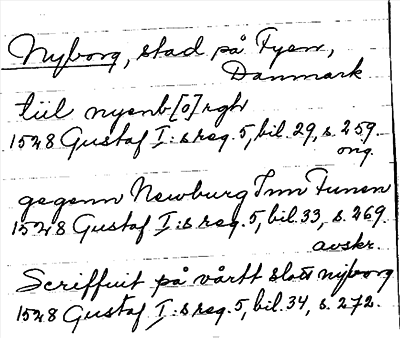 Nyborg, stad på Fyen,
Danmark
till nyenb[o]rgh
1528 Gustaf I:s reg. 5, bil. 29, s. 259.
orig.
gegenn Newburg Inn Funen
1528 Gustaf I:s reg. 5, bil. 33, s. 269.
avskr.
Scriffuit på vårtt slott nyborg
1528 Gustaf I:s reg. 5, bil. 34, s. 272.